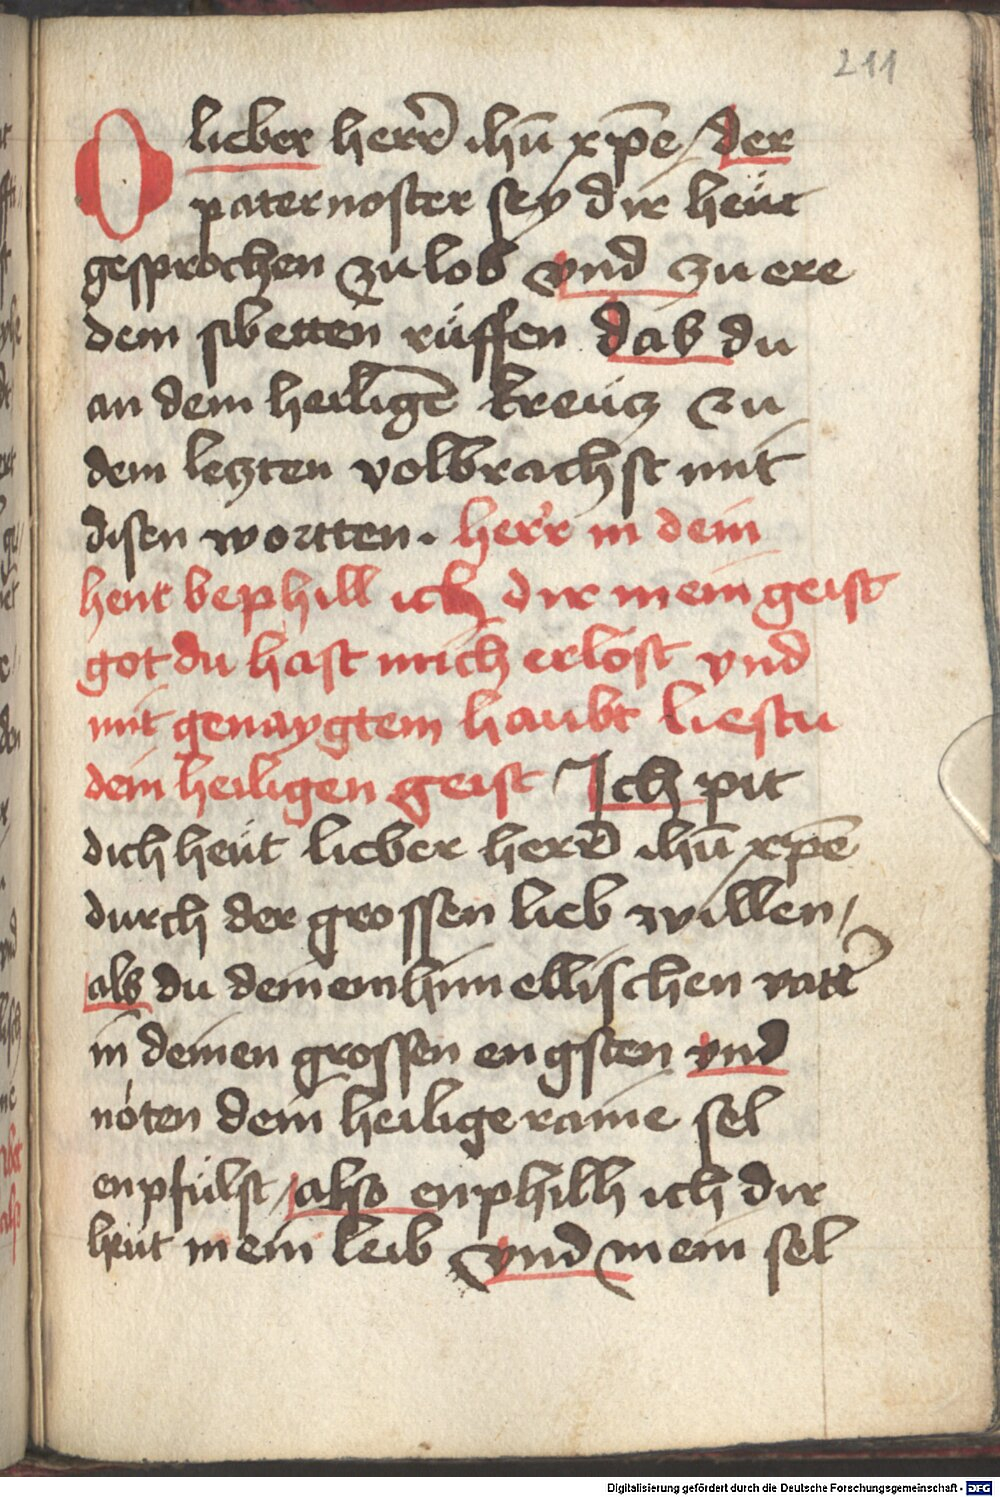 211
O lieber herr ihū xp̄e / der
paternoster sey dir heüt
gesprochen zu lob vnd zu ere
dem sibetten rüffen das du
an dem heiliḡe kreücz zu
dem leczten volbrachst mit
disen wortten. herr in dein
hent bephill ich dir mein geist
got du hast mich erlost vnd
mit genaygtem haubt liestu
dein heiligen geist Ich pit
dich heüt lieber herr ihū xp̄e
durch der grossen lieb willen /
als du deinem himellischen vatt'
in deinen grossen engsten vnd
nöten dein heilige raine sel
enpfülst / also enphilh ich dir
heüt mein leib vnd mein sel
Digitalisierung gefördert durch die Deutsche Forschungsgemeinschaft - DFG